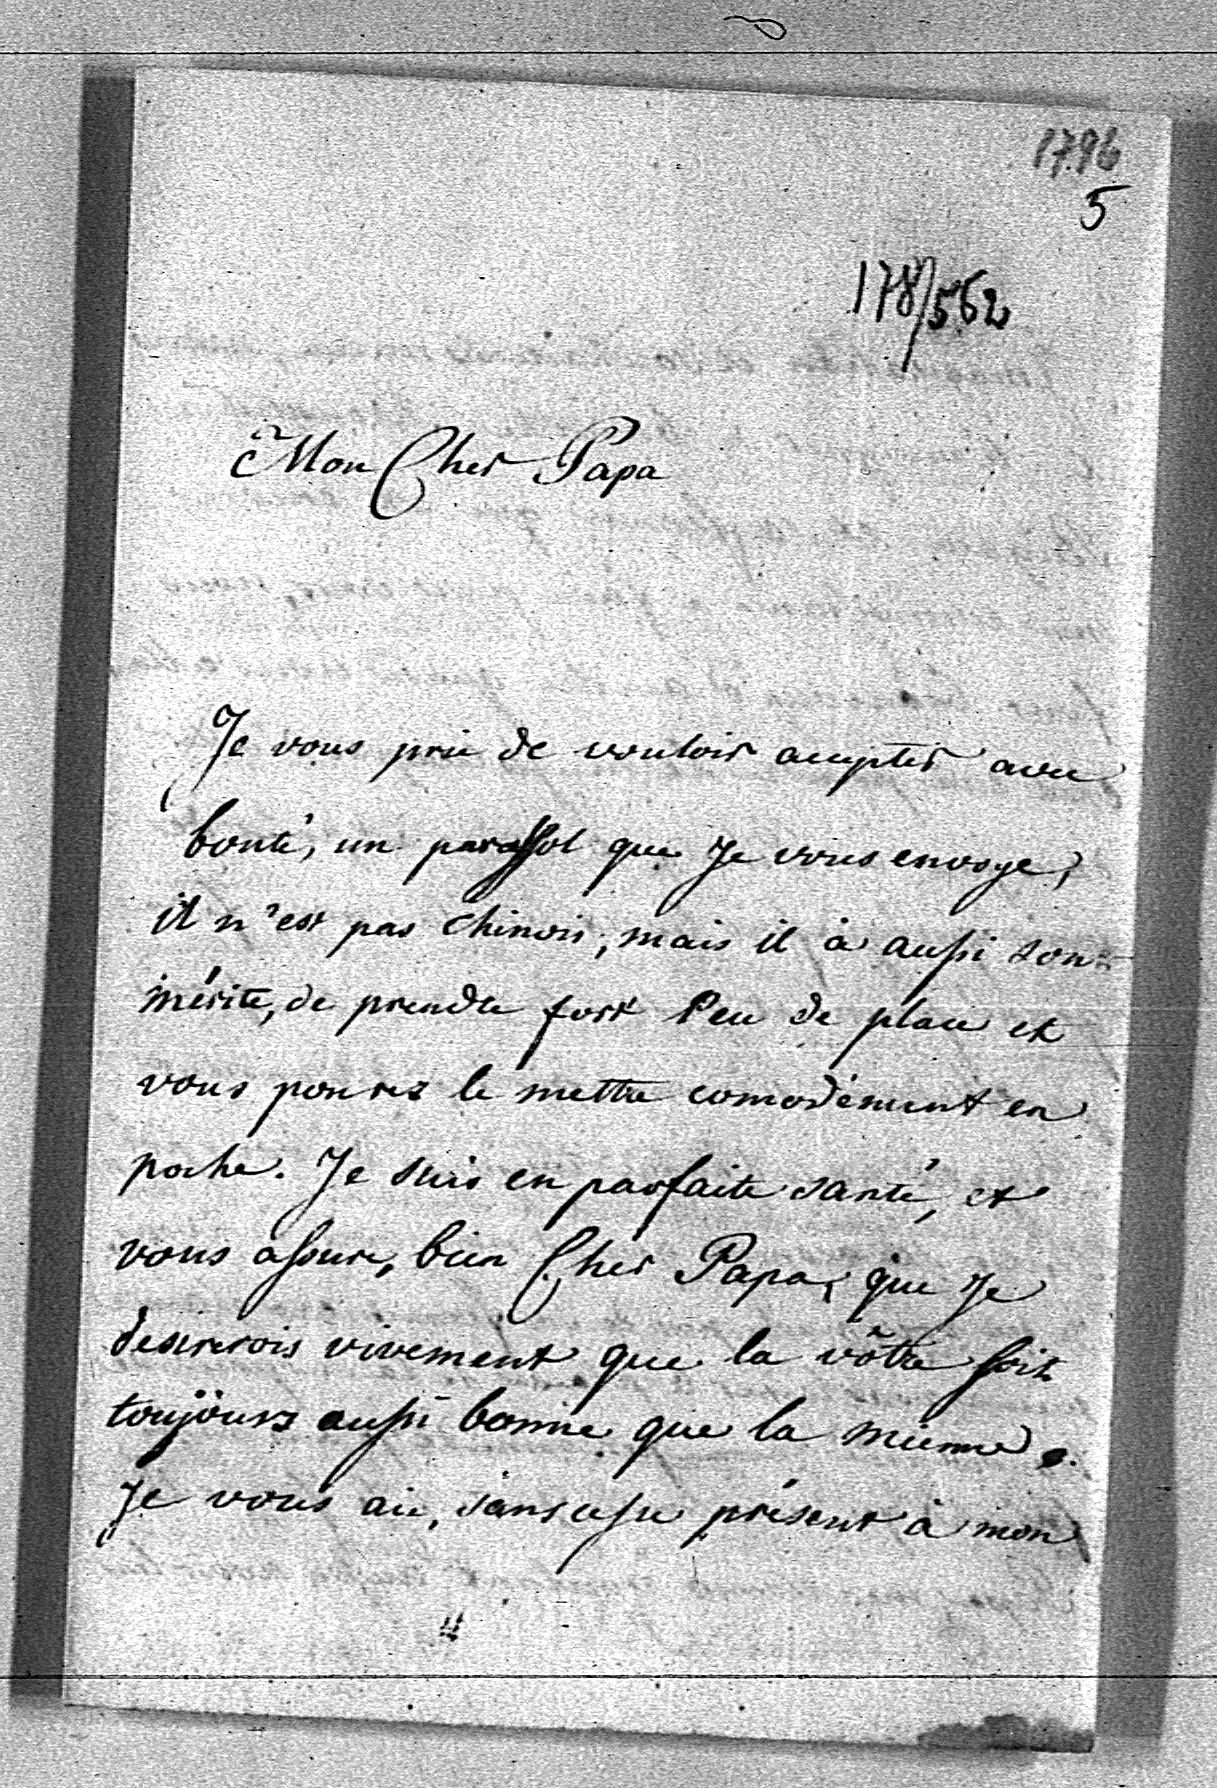 1796
5
178/562
Mon Cher Papa
Je vous prie de vouloir accepter avec
bonté, un parassol que Je vous envoye,
il n'est pas chinois, mais il à aussi son
mérite, de prendre fort Peu de place et
vous pourez le mettre comodément en
poche. Je suis en parfaite santé, et
vous assure, bien Cher Papa, que Je
desirerois vivement que la vôtre soit
toujours aussi bonne que la mienne.
Je vous ai, sans cesse présent à mon